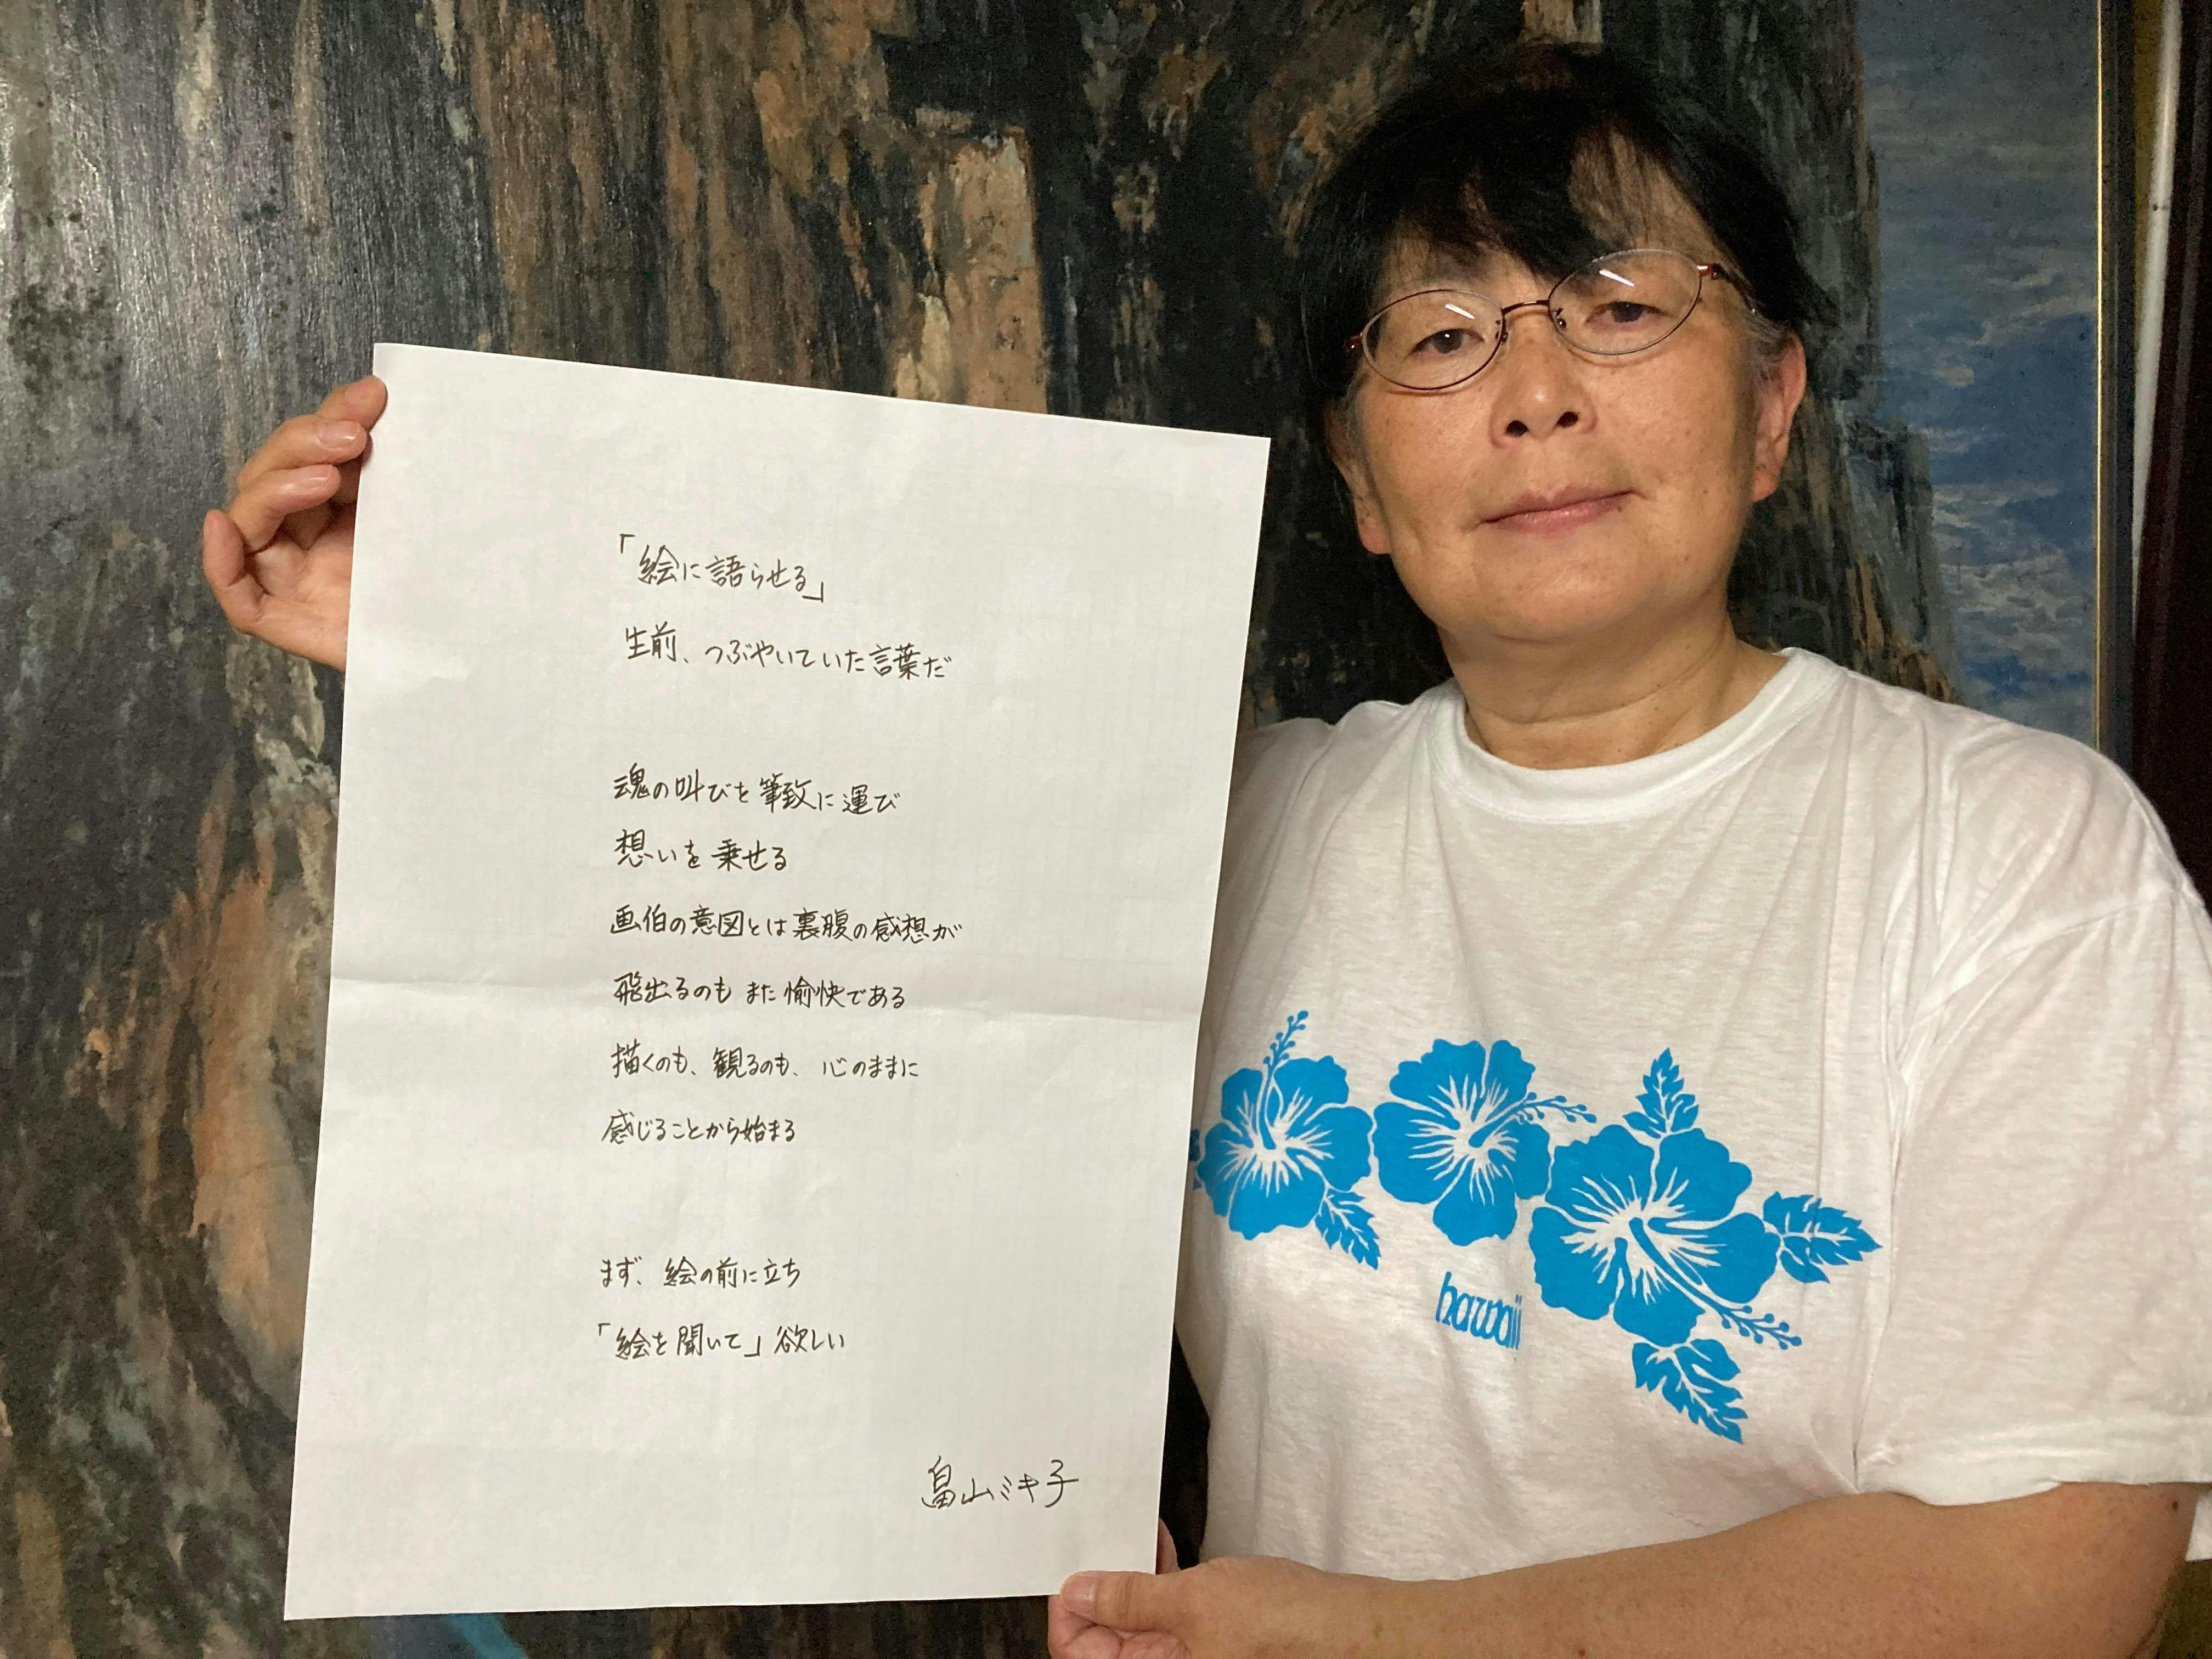 「絵に語らせる」
生前、つぶやいていた言葉だ
魂の叫びを筆致に運び
想いを乗せる
画伯の意図とは裏腹の感想が
飛出るのもまた愉快である
描くのも、観るのも、心のままに
感じることから始まる
まず、絵の前に立ち
「絵を聞いて」欲しい
畠山ミキ子
hawaii